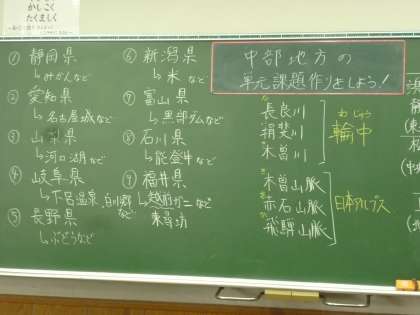 かしこく
たくましく
① 静岡県
↳みかんなど
② 愛知県
↳名古屋城など
③ 山梨県
↳河口湖など
④ 岐阜県
↳下呂温泉、白川郷など
⑤ 長野県
↳ぶどうなど
⑥ 新潟県
↳米 など
⑦ 富山県
↳黒部ダムなど
⑧ 石川県
↳能登牛など
⑨ 福井県
↳越前ガニなど
東尋坊
中部地方の
単元課題作りをしよう!
長良川
揖斐川
木曽川
わじゅう
輪中
木曽山脈
赤石山脈
飛騨山脈
日本アルプス